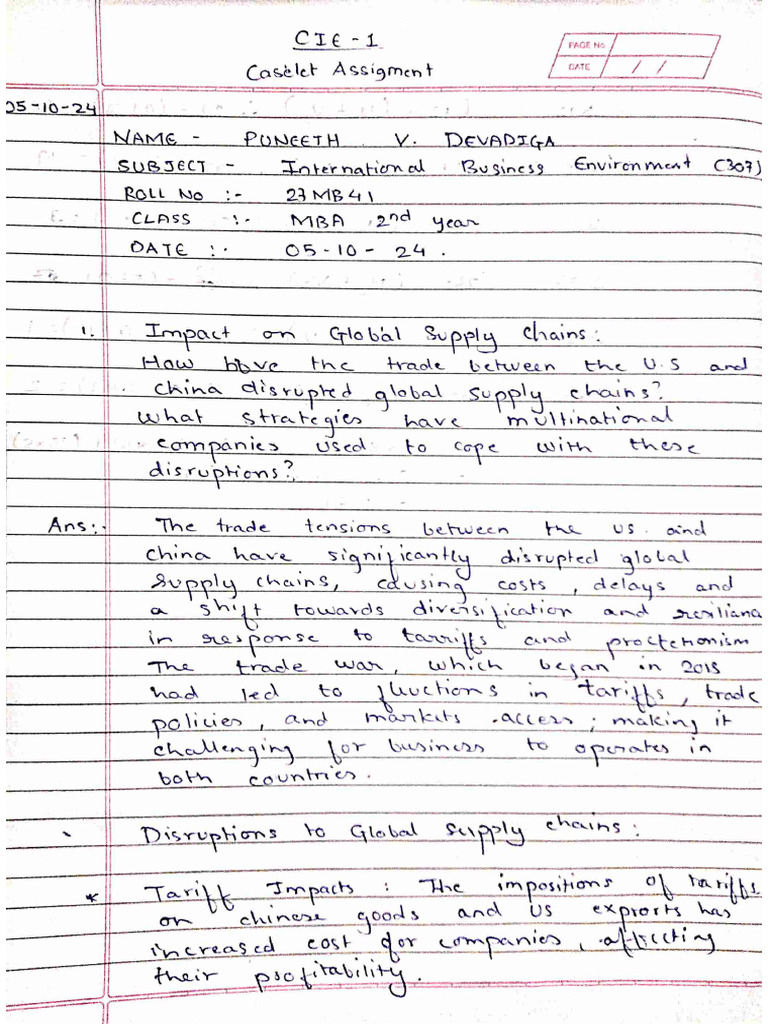 CIE - 1
Caselet Assigment
PAGE No
DATE / /
05-10-24
NAME - PUNEETH V. DEVADIGA
SUBJECT - International Business Environment (307)
ROLL No :- 23MB41
CLASS :- MBA 2nd year
DATE :- 05-10-24.
1. Impact on Global Supply Chains:
How have the trade between the U.S and
china disrupted global supply chains?
What strategies have multinational
companies used to cope with these
disruptions?
Ans:- The trade tensions between the US. and
china have significantly disrupted global
supply chains, causing costs, delays and
a shift towards diversification and resiliance
in response to tarriffs and proctetionism
The trade war, which began in 2018
had led to fluctions in tariffs, trade
policies, and markets access; making it
challenging for business to operates in
both countries.
Disruptions to Global supply chains:
* Tariff Impacts : The impositions of tariffs
on chinese goods and US exprorts has
increased cost for companies, affeccting
their profitability.